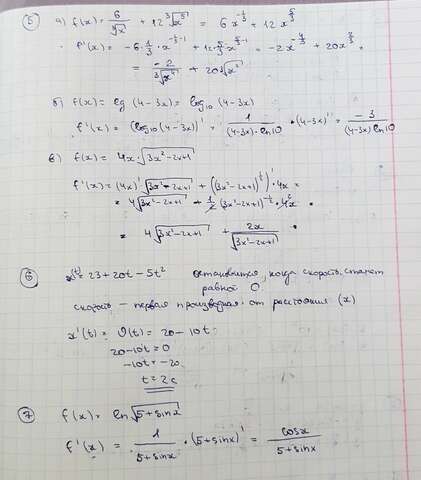 ⑤ а) f(x) = 6/∛x + 12 ∛x⁵ = 6x^(-1/3) + 12x^(5/3)
f'(x) = -6·1/3·x^(-1/3-1) + 12·5/3·x^(5/3-1) = -2x^(-4/3) + 20x^(2/3)
= -2/∛x⁴ + 20∛x²
б) f(x) = lg (4-3x) = log₁₀ (4-3x)
f'(x) = (log₁₀ (4-3x))' = 1/((4-3x)·ln10) · (4-3x)' = -3/((4-3x)ln10)
в) f(x) = 4x·√(3x²-2x+1)
f'(x) = (4x)' √(3x²-2x+1) + ((3x²-2x+1)^(1/2))'·4x =
= 4√(3x²-2x+1) + 1/2 (3x²-2x+1)^(-1/2)·4x ·
= 4√(3x²-2x+1) + 2x/√(3x²-2x+1) ·
⑥ x(t) = 23+20t-5t² остановится, когда скорость станет
равной 0
скорость - первая производная от расстояния (x)
x'(t) = v(t) = 20-10t
20-10t = 0
-10t = -20
t = 2c
⑦ f(x) = ln √(5+sinx)
f'(x) = 1/(5+sinx) · (5+sinx)' = cosx/(5+sinx)